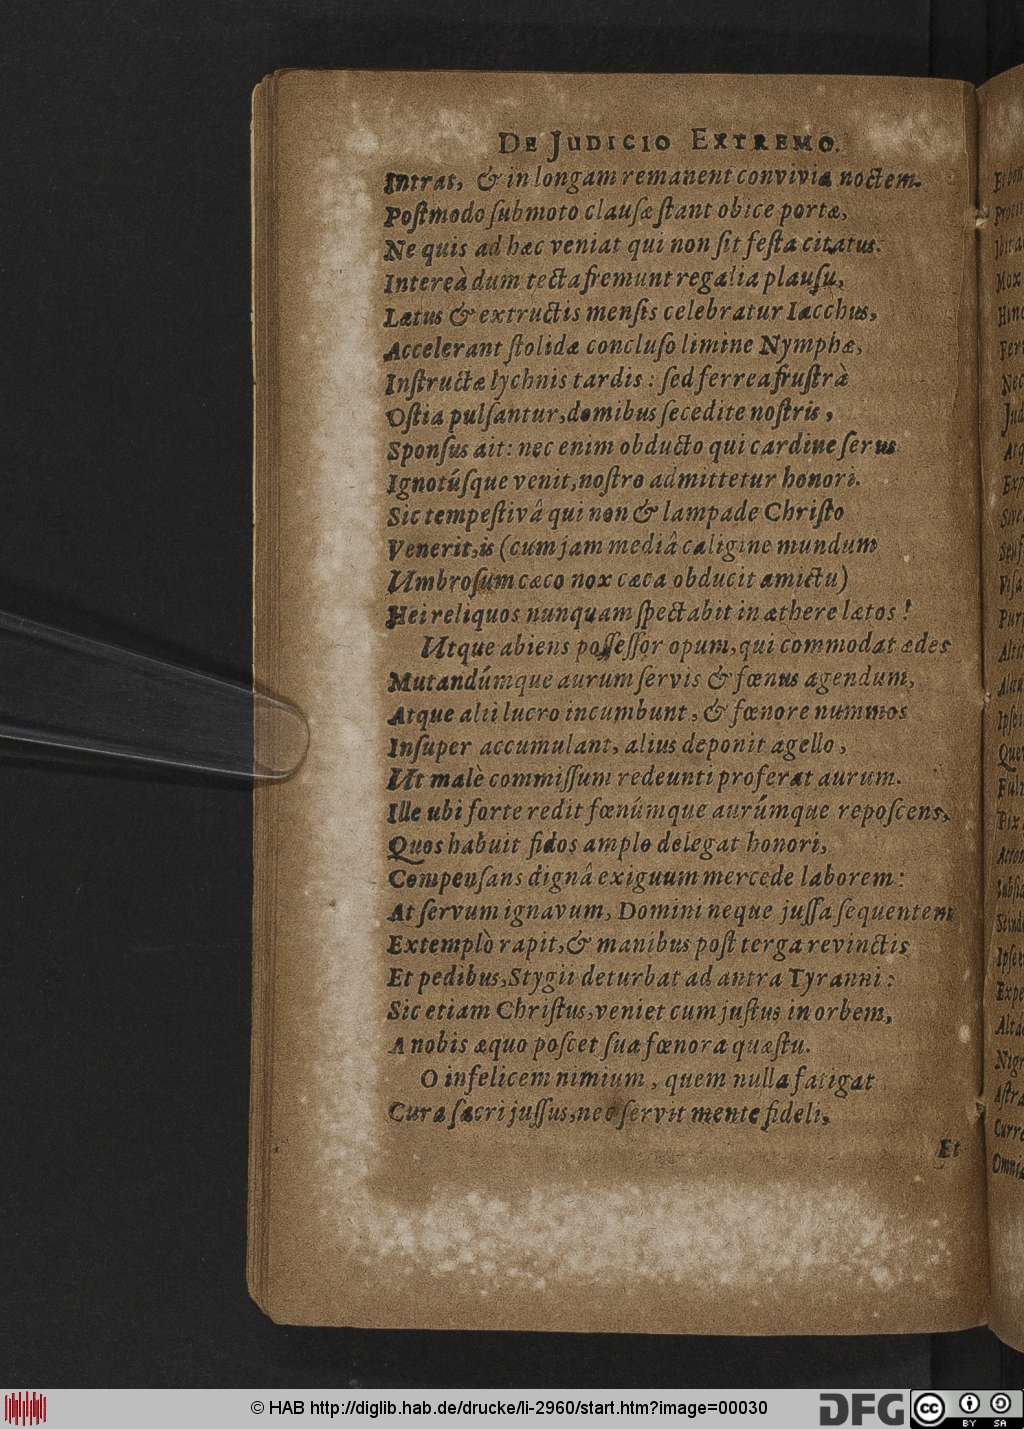 De Judicio Extremo.
Intrat, & in longam remanent convivia noctem.
Poſtmodo ſubmoto clauſæ ſtant obice portæ,
Ne quis ad hæc veniat qui non ſit feſta citatus.
Intereà dum tecta fremunt regalia plauſu,
Lætus & extructis menſis celebratur Iacchus,
Accelerant ſtolidæ concluſo limine Nymphæ,
Inſtructæ lychnis tardis: ſed ferrea fruſtrà
Oſtia pulſantur, domibus ſecedite noſtris,
Sponſus ait: nec enim obducto qui cardine ſerus
Ignotúſque venit, noſtro admittetur honori.
Sic tempeſtivâ qui non & lampade Chriſto
Venerit, is (cum jam mediâ caligine mundum
Umbroſum cæco nox cæca obducit amictu)
Hei reliquos nunquam ſpectabit in æthere lætos!
Utque abiens poſſeſſor opum, qui commodat ædes
Mutandúmque aurum ſervis & fœnus agendum,
Atque alii lucro incumbunt, & fœnore nummos
Inſuper accumulant, alius deponit agello,
Ut malè commiſſum redeunti proferat aurum.
Ille ubi forte redit fœnúmque aurúmque repoſcens,
Quos habuit fidos amplo delegat honori,
Compenſans dignâ exiguum mercede laborem:
At ſervum ignavum, Domini neque juſſa ſequentem
Extemplò rapit, & manibus poſt terga revinctis
Et pedibus, Stygii deturbat ad antra Tyranni:
Sic etiam Chriſtus, veniet cum juſtus in orbem,
A nobis æquo poſcet ſua fœnora quæſtu.
O infelicem nimium, quem nulla fatigat
Cura ſacri juſſus, nec ſervit mente fideli,
Et
© HAB http://diglib.hab.de/drucke/li-2960/start.htm?image=00030
DFG
cc BY SA